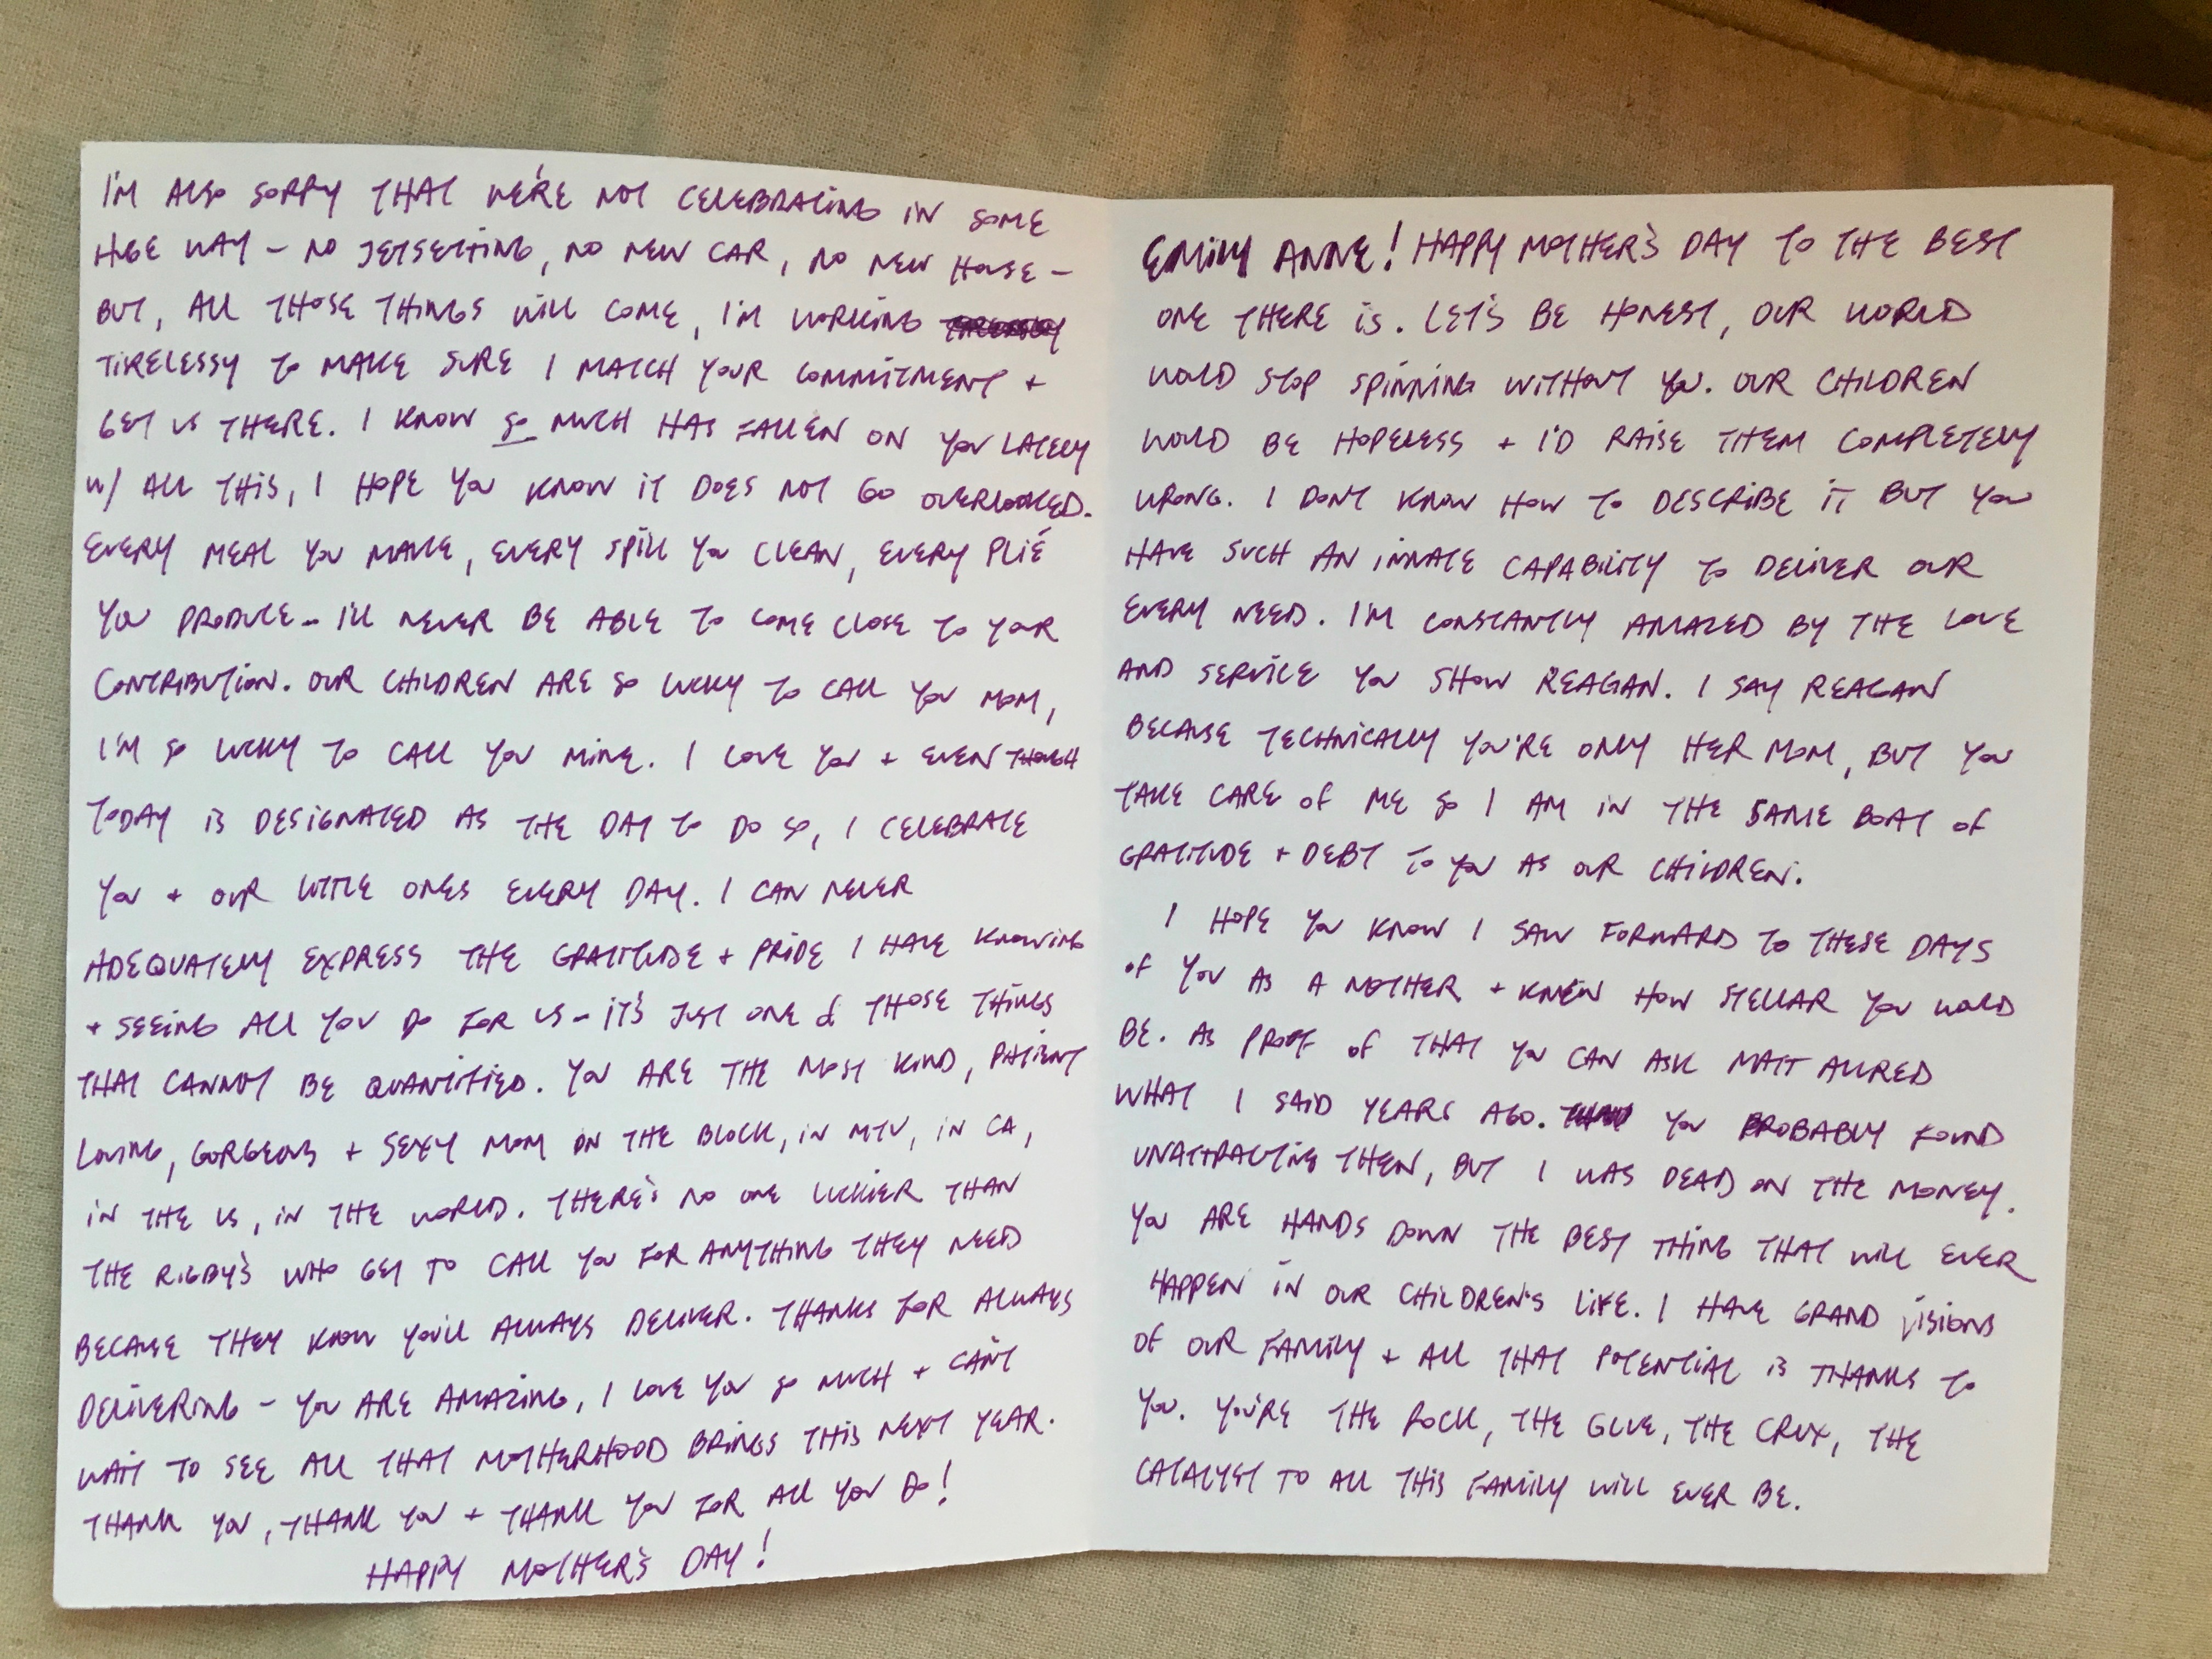 EMILY ANNE! HAPPY MOTHER'S DAY TO THE BEST
ONE THERE IS. LET'S BE HONEST, OUR WORLD
WOULD STOP SPINNING WITHOUT YOU. OUR CHILDREN
WOULD BE HOPELESS + I'D RAISE THEM COMPLETELY
WRONG. I DON'T KNOW HOW TO DESCRIBE IT BUT YOU
HAVE SUCH AN INNATE CAPABILITY TO DELIVER OUR
EVERY NEED. I'M CONSTANTLY AMAZED BY THE LOVE
AND SERVICE YOU SHOW REAGAN. I SAY REAGAN
BECAUSE TECHNICALLY YOU'RE ONLY HER MOM, BUT YOU
TAKE CARE OF ME SO I AM IN THE SAME BOAT OF
GRATITUDE + DEBT TO YOU AS OUR CHILDREN.
I HOPE YOU KNOW I SAW FORWARD TO THESE DAYS
OF YOU AS A MOTHER + KNEW HOW STELLAR YOU WOULD
BE. AS PROOF OF THAT YOU CAN ASK MATT ALLRED
WHAT I SAID YEARS AGO. YOU PROBABLY FOUND
UNATTRACTING THEN, BUT I WAS DEAD ON THE MONEY.
YOU ARE HANDS DOWN THE BEST THING THAT WILL EVER
HAPPEN IN OUR CHILDREN'S LIFE. I HAVE GRAND VISIONS
OF OUR FAMILY + ALL THAT POTENTIAL IS THANKS TO
YOU. YOU'RE THE ROCK, THE GLUE, THE CRUX, THE
CATALYST TO ALL THIS FAMILY WILL EVER BE.
I'M ALSO SORRY THAT WE'RE NOT CELEBRATING IN SOME
HUGE WAY - NO JETSETTING, NO NEW CAR, NO NEW HOUSE -
BUT, ALL THOSE THINGS WILL COME, I'M WORKING
TIRELESSY TO MAKE SURE I MATCH YOUR COMMITMENT +
GET US THERE. I KNOW SO MUCH HAS FALLEN ON YOU LATELY
W/ ALL THIS, I HOPE YOU KNOW IT DOES NOT GO OVERLOOKED.
EVERY MEAL YOU MAKE, EVERY SPILL YOU CLEAN, EVERY PLIÉ
YOU PRODUCE - I'LL NEVER BE ABLE TO COME CLOSE TO YOUR
CONTRIBUTION. OUR CHILDREN ARE SO LUCKY TO CALL YOU MOM,
I'M SO LUCKY TO CALL YOU MINE. I LOVE YOU + EVEN THOUGH
TODAY IS DESIGNATED AS THE DAY TO DO SO, I CELEBRATE
YOU + OUR LITTLE ONES EVERY DAY. I CAN NEVER
ADEQUATELY EXPRESS THE GRATITUDE + PRIDE I HAVE KNOWING
+ SEEING ALL YOU DO FOR US - IT'S JUST ONE OF THOSE THINGS
THAT CANNOT BE QUANTIFIED. YOU ARE THE MOST KIND, PATIENT
LOVING, GORGEOUS + SEXY MOM ON THE BLOCK, IN MTV, IN CA,
IN THE US, IN THE WORLD. THERE'S NO ONE LUCKIER THAN
THE RIGBY'S WHO GET TO CALL YOU FOR ANYTHING THEY NEED
BECAUSE THEY KNOW YOU'LL ALWAYS DELIVER. THANKS FOR ALWAYS
DELIVERING - YOU ARE AMAZING, I LOVE YOU SO MUCH + CAN'T
WAIT TO SEE ALL THAT MOTHERHOOD BRINGS THIS NEXT YEAR.
THANK YOU, THANK YOU + THANK YOU FOR ALL YOU DO!
HAPPY MOTHER'S DAY!